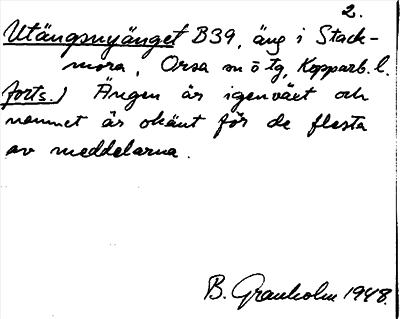 2.
Utängsnyänget B39, äng i Stack-
mora, Orsa sn ö tg, Kopparb. l.
forts.) Ängen är igenväxt och
namnet är okänt för de flesta
av meddelarna.
B. Granholm 1948.